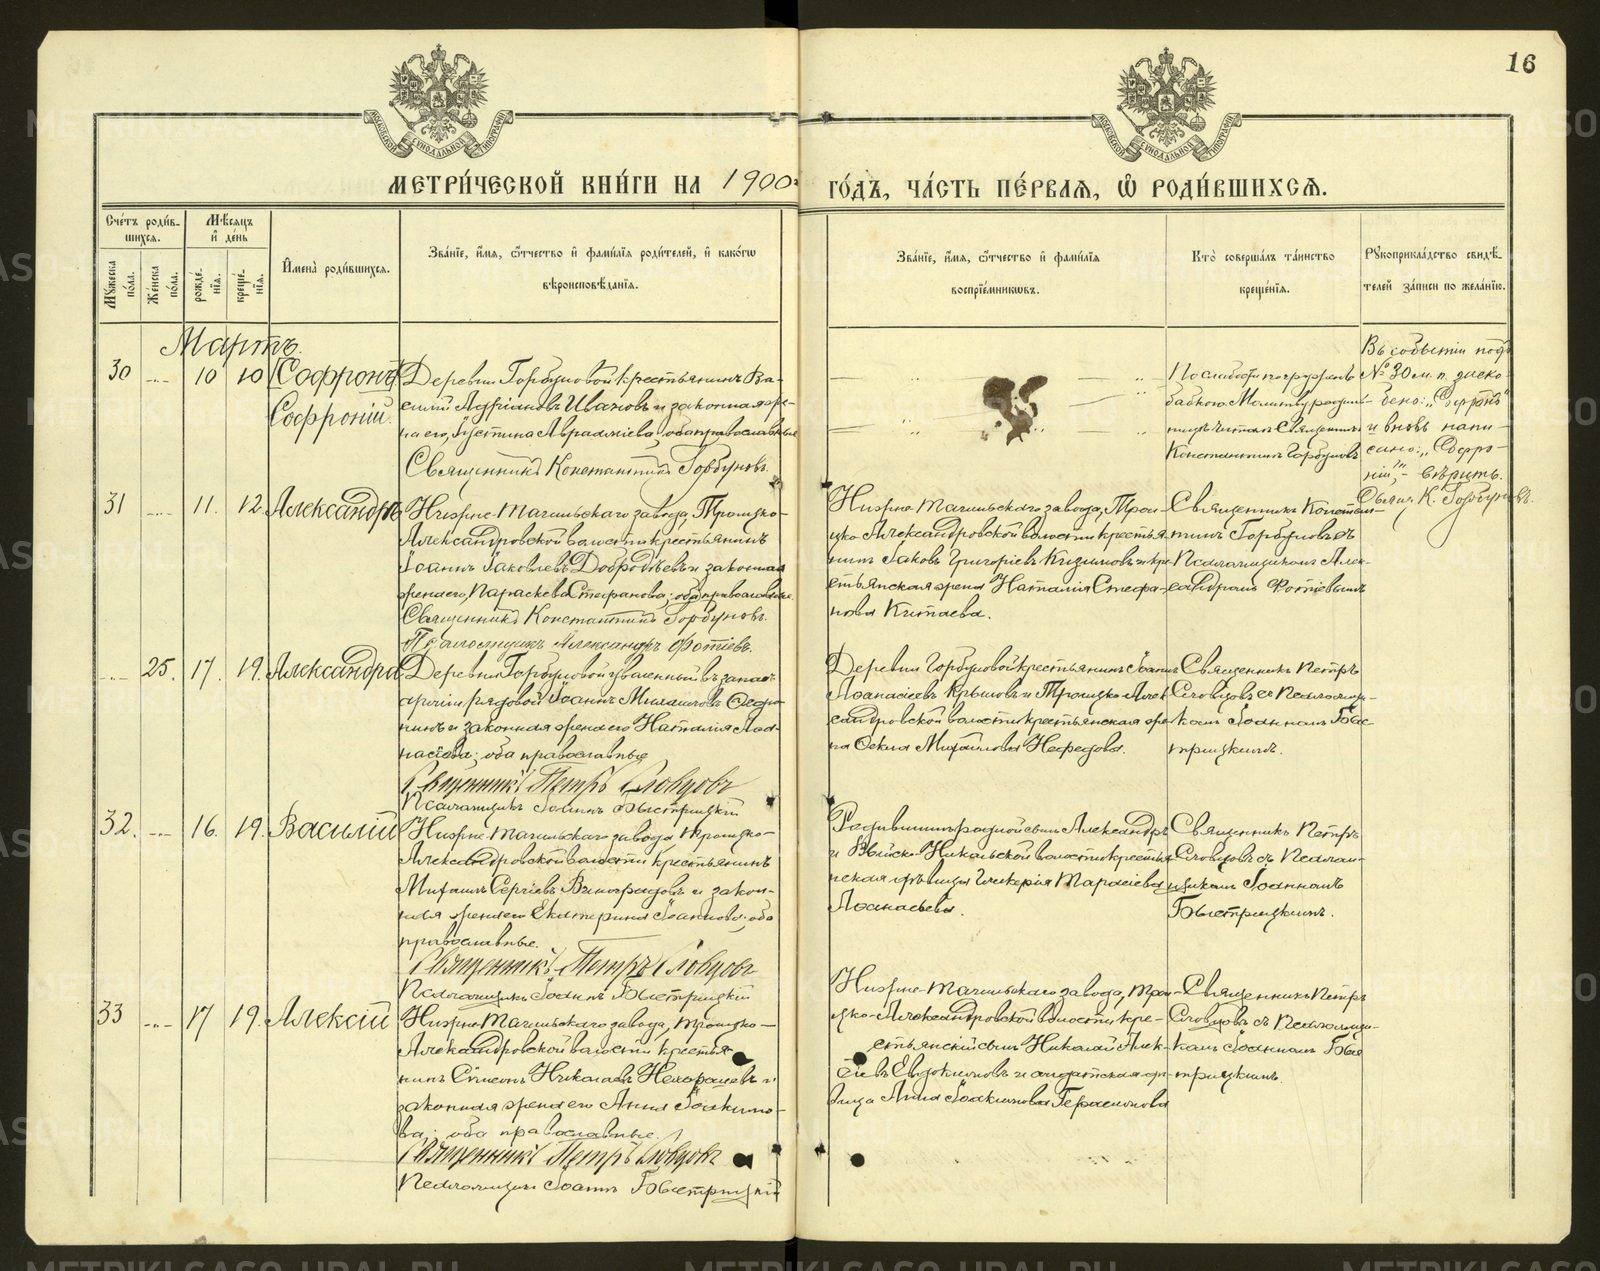 16
МОСКОВСКОЙ СѴНОДАЛЬНОЙ ТИПОГРАФІИ
МОСКОВСКОЙ СѴНОДАЛЬНОЙ ТИПОГРАФІИ
МЕТРИ́ЧЕСКОЙ КНИ́ГИ НА 1900
ГО́ДЪ, ЧА́СТЬ ПЕ́РВАЯ, Ѡ РОДИ́ВШИХСѦ.
Сче́тъ роди́в-
шихсѧ.
Мѣ́сѧцъ
и де́нь
Мꙋ́жеска
по́ла.
Же́нска
по́ла.
рожде́-
нїѧ.
креще́-
нїѧ.
И҆мена̀ роди́вшихсѧ.
Зва́нїе, и҆́мѧ, ѻ҆́тчество и҆ фами́лїѧ роди́телей, и҆ како́гѡ
вѣроисповѣ́данїѧ.
Зва́нїе, и҆́мѧ, ѻ҆́тчество и҆ фами́лїѧ
воспрїе́мникѡвъ.
Кто̀ соверша́лъ та́инство
креще́нїѧ.
Рꙋкоприкла́дство свидѣ́-
телей за́писи по жела́нїю.
Мартъ.
30 10 10 Софронъ
Софроній.
Деревни Горбуновой крестьянинъ Ва-
силій Адріановъ Ивановъ и законная же-
на его, Іустина Авраамиева; оба православные
Священникъ Константинъ Горбуновъ.
По слабости погруженъ
бабкою. Молитву родиль-
ницѣ читалъ Священникъ
Константинъ Горбуновъ
Въ событіи подъ
№ 30 м. п. зиско-
блено: „Софронъ"
и вновь напи-
сано: „Софро-
ній", - вѣрить.
Свящ. К. Горбуновъ.
31 11. 12. Александръ
Нижне-Тагильскаго завода, Троицко-
Александровской волости крестьянинъ
Іоаннъ Іаковлевъ Добродѣевъ и законная
жена его, Параскева Стефанова; оба православные.
Священникъ Константинъ Горбуновъ.
Псаломщикъ Александръ Фотіевъ.
Нижне-Тагильскаго завода, Трои-
цко-Александровской волости крестья-
нинъ Іаковъ Григоріевъ Кизиловъ и кре-
стьянская жена Наталія Стефа-
нова Китаева.
Священникъ Констан-
тинъ Горбуновъ съ
Псаломщикомъ Алек-
сандромъ Фотіевымъ
25. 17. 19. Александра
Деревни Горбуновой уволенный въ запас
арміи рядовой Іоаннъ Михаиловъ
и законная жена его Наталія Аѳа-
насіева; оба православные
Священникъ Петръ Словцовъ
Псаломщикъ Іоаннъ Быстрицкій
Деревни Горбуновой крестьянинъ Іоаннъ
Аѳанасіевъ Крыловъ и Троицко-Алек-
сандровской волости крестьянская же-
на Ѳекла Михаилова Нефедова.
Священникъ Петръ
Словцовъ съ Псаломщи-
комъ Іоанномъ Быс-
трицкимъ.
32. 16. 19. Василій
Нижне-Тагильскаго завода Троицко-
Александровской волости крестьянинъ
Михаилъ Сергіевъ Виноградовъ и закон-
ная жена его Екатерина Іоаннова; оба
православные.
Священникъ Петръ Словцовъ
Псаломщикъ Іоаннъ Быстрицкій
Родившимъ родной сынъ Александръ
и Выйско-Никольской волости крестья-
нская дѣвица Гликерія Тарасіева
Аѳанасьева.
Священникъ Петръ
Словцовъ съ Псалом-
щикомъ Іоанномъ
Быстрицкимъ.
33 17 19. Алексій
Нижне-Тагильскаго завода, Троицко-
Александровской волости крестья-
нинъ Симеонъ Николаевъ Нехорошевъ и
законная жена его Анна Іоакимо-
ва; оба православные.
Священникъ Петръ Словцовъ
Псаломщикъ Іоаннъ Быстрицкій
Нижне-Тагильскаго завода, Трои-
цко-Александровской волости кре-
стьянскій сынъ Николай Алек-
сіевъ Евдокимовъ и солдатская дѣ-
вица Анна Іоакимова Герасимова
Священникъ Петръ
Словцовъ съ Псаломщи-
комъ Іоанномъ Быс-
трицкимъ.
METRIKI.GASO-URAL.RU